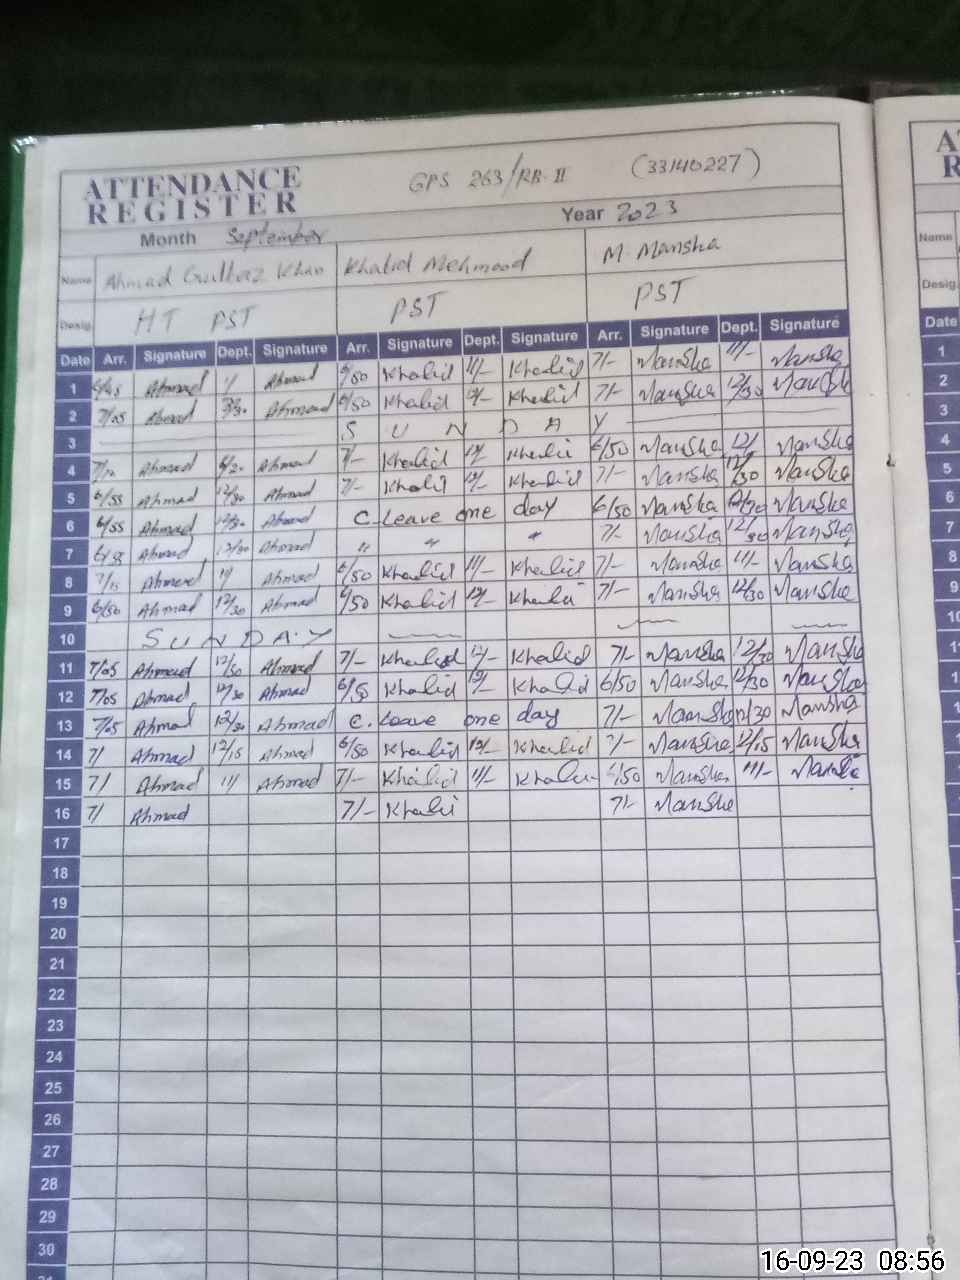 ATTENDANCE REGISTER GPS 263/RB-II (33140227)
Month September Year 2023
Name Ahmad Gulbaz Khan Khalid Mehmood M. Mansha Name
Desig. HT PST PST PST Desig.
Date Arr. Signature Dept. Signature Arr. Signature Dept. Signature Arr. Signature Dept. Signature Date
1 6/45 Ahmad 11/ Ahmad 6/50 Khalid 11/- Khalid 7/- Mansha 11/- Mansha 1
2 7/05 Ahmad Ahmad 6/50 Khalid 12/- Khalid 7/- Mansha 12/30 Mansha 2
3 SUNDAY 3
4 Ahmad Ahmad 7/- Khalid 12/- Khalid 6/50 Mansha 12/ Mansha 4
5 6/55 Ahmad 12/30 Ahmad 7/- Khalid 12/- Khalid 7/- Mansha 12/30 Mansha 5
6 6/55 Ahmad 12/30 Ahmad C. Leave one day 6/50 Mansha 12/30 Mansha 6
7 Ahmad 12/30 Ahmad " " " 7/- Mansha 12/30 Mansha 7
8 7/15 Ahmad 11/ Ahmad 6/50 Khalid 11/- Khalid 7/- Mansha 11/- Mansha 8
9 6/50 Ahmad 12/30 Ahmad 6/50 Khalid 12/- Khalid 7/- Mansha 12/30 Mansha 9
10 SUNDAY 10
11 7/05 Ahmad 12/30 Ahmad 7/- Khalid 12/- Khalid 7/- Mansha 12/30 Mansha 11
12 7/05 Ahmad 12/30 Ahmad 6/55 Khalid 12/- Khalid 6/50 Mansha 12/30 Mansha 12
13 7/05 Ahmad 12/30 Ahmad C. Leave one day 7/- Mansha 12/30 Mansha 13
14 7/ Ahmad 12/15 Ahmad 6/50 Khalid 12/- Khalid 7/- Mansha 12/15 Mansha 14
15 7/ Ahmad 11/ Ahmad 7/- Khalid 11/- Khalid 6/50 Mansha 11/- Mansha 15
16 7/ Ahmad 7/- Khalid 7/- Mansha 16
17
18
19
20
21
22
23
24
25
26
27
28
29
30
16-09-23 08:56